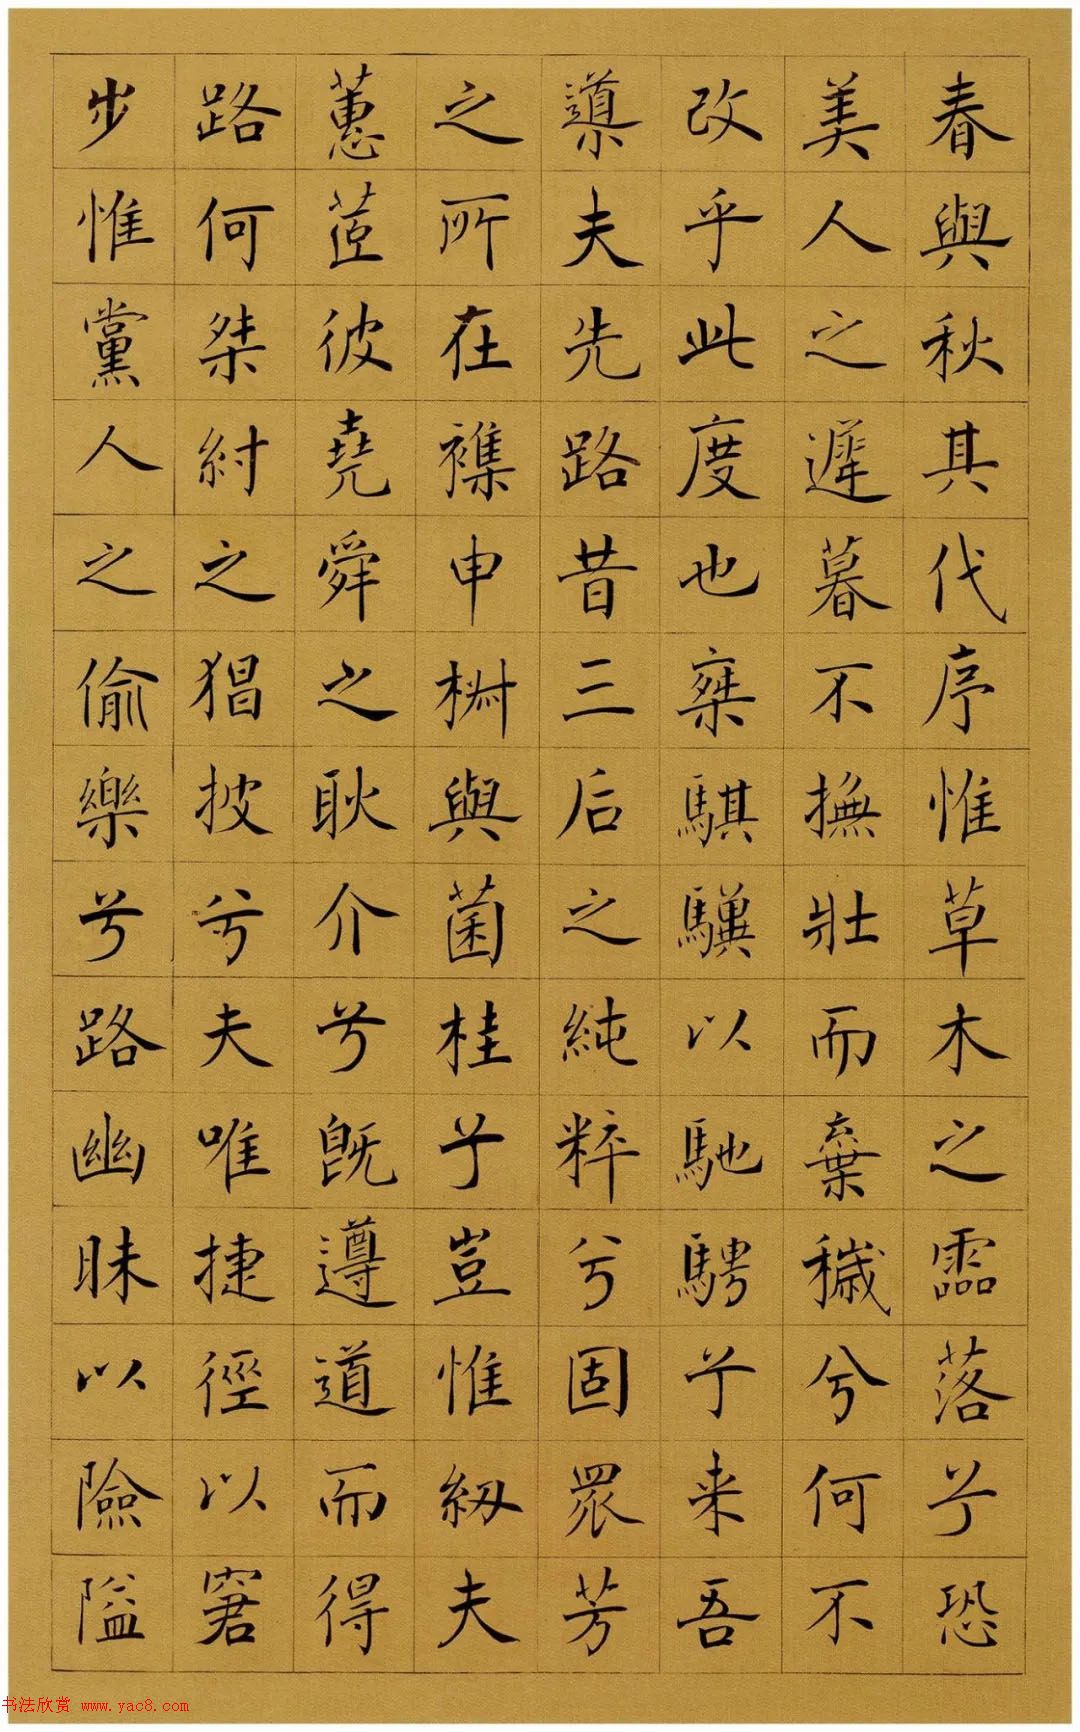 春與秋其代序惟草木之霝落兮恐
美人之遲暮不撫壯而棄穢兮何不
改乎此度也椉騏驥以馳騁兮来吾
導夫先路昔三后之純粹兮固眾芳
之所在襍申椒與菌桂兮豈惟紉夫
蕙茝彼堯舜之耿介兮既遵道而得
路何桀紂之猖披兮夫唯捷徑以窘
步惟黨人之偷樂兮路幽昧以險隘
书法欣赏 www.yac8.com